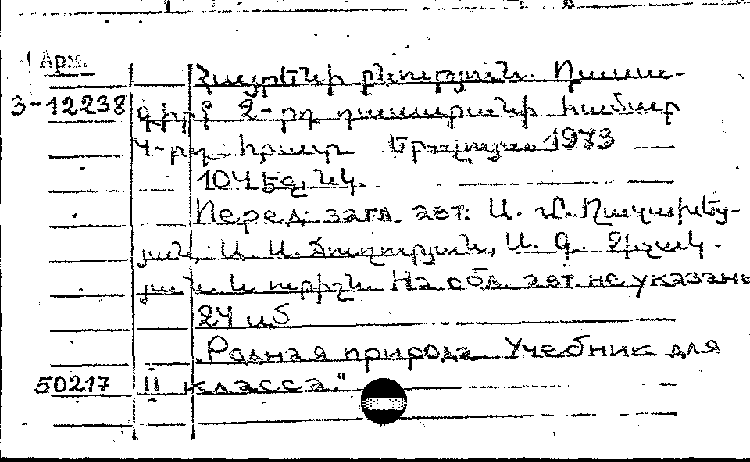 Арм.
Հայրենի բնություն. Դասա-
3-12238 գիրք 2-րդ դասարանի համար
4-րդ հրատ. Երևան 1973
104 էջ, նկ.
Перед загл. авт.: Ա. Մ.
յան, Ա. Ա. Ա. Գ.
յան և ուրիշն. На обл. авт. не указаны
24 սմ
"Родная природа. Учебник для
50217 II класса."